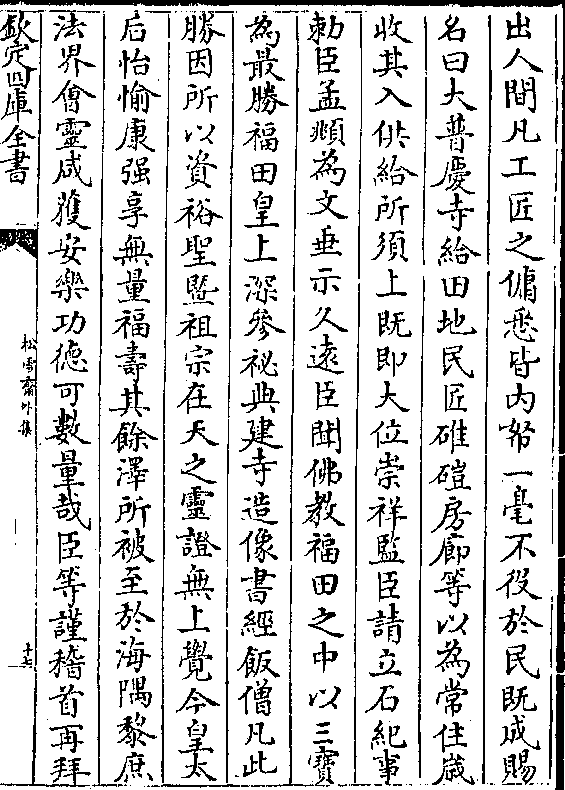 出人間凡工匠之傭悉皆内帑一毫不役於民既成賜
名曰大普慶寺給田地民匠碓磑房廊等以為常住歲
收其入供給所須上既即大位崇祥監臣請立石紀事
勅臣孟頫為文垂示久遠臣聞佛教福田之中以三寶
為最勝福田皇上深參祕典建寺造像書經飯僧凡此
勝因所以資裕聖暨祖宗在天之靈證無上覺今皇太
后怡愉康强享無量福壽其餘澤所被至於海隅黎庶
法界含靈咸獲安樂功德可數量哉臣等謹稽首再拜
欽定四庫全書
松雪齋外集
十七